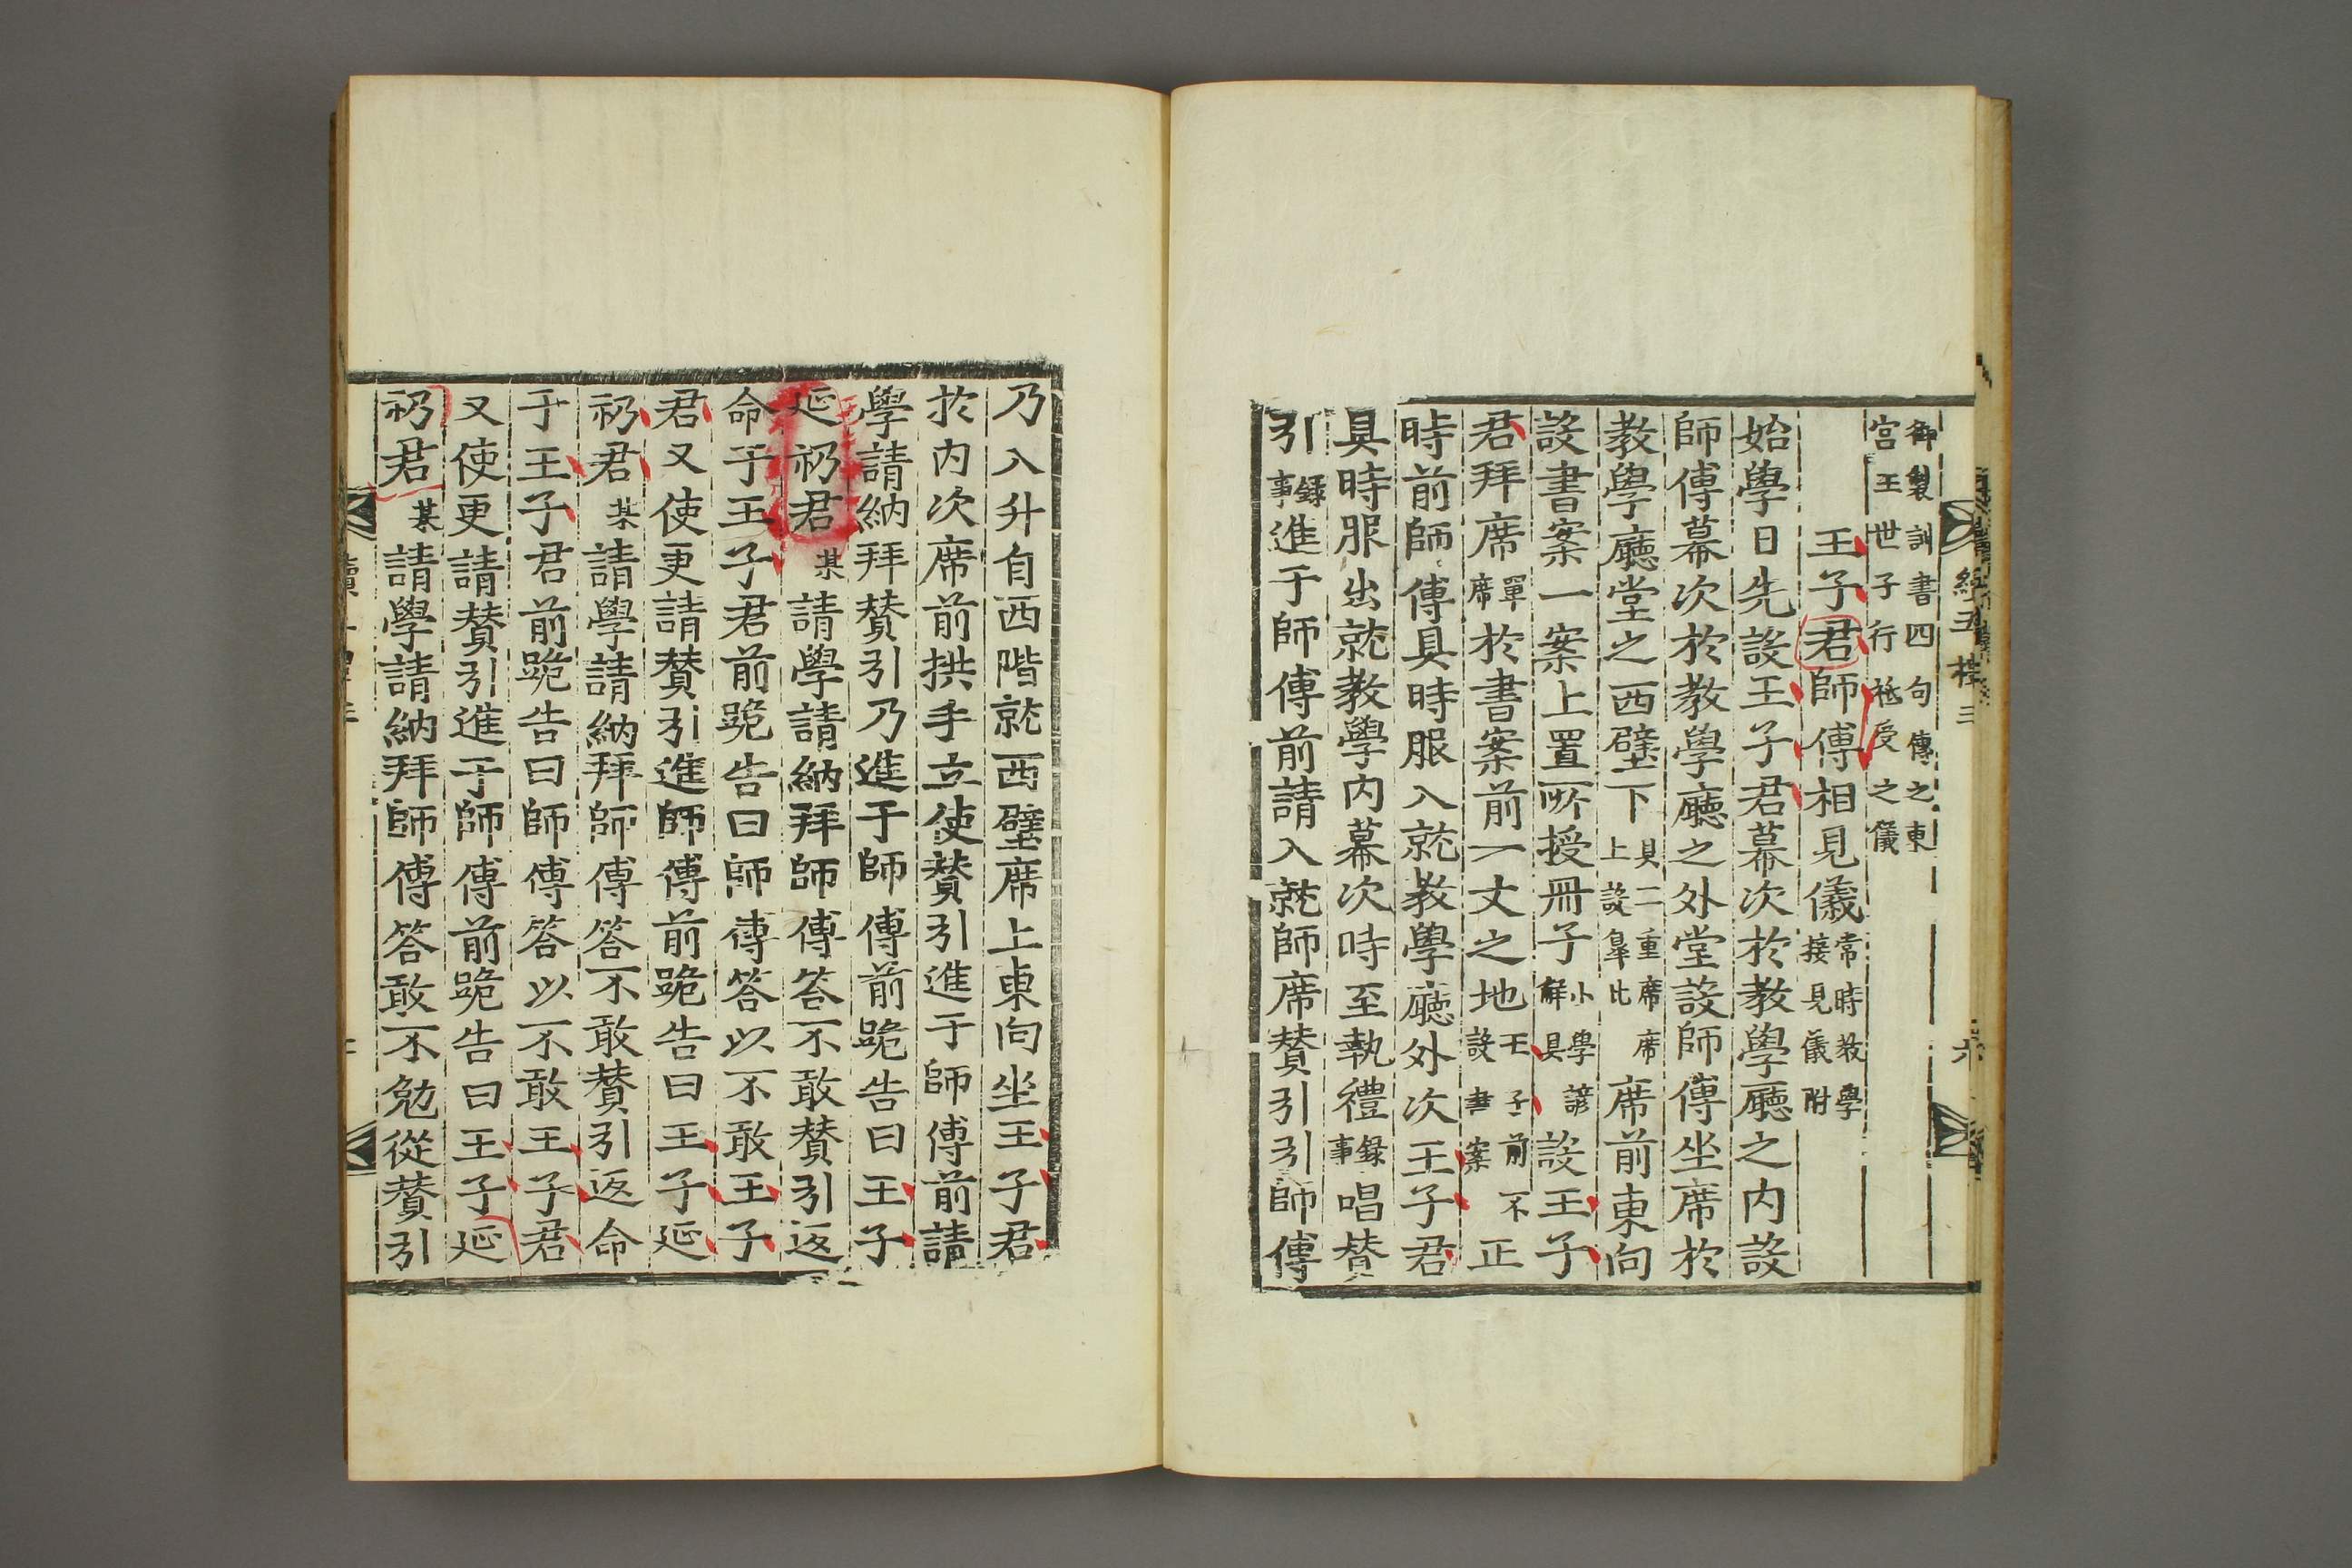 御製訓書四句傳之東
宮王世子行祗受之儀
王子君師傅相見儀常時敎學接見儀附
始學日先設王子君幕次於教學廳之內設
師傅幕次於教學廳之外堂設師傅坐席於
教學廳堂之西壁下具二重席席上設皐比席前東向
設書案一案上置所授冊子小學諺解具設王子
君拜席單席於書案前一丈之地王子前不設書案正
時前師傅具時服入就教學廳外次王子君
具時服出就教學內幕次時至執禮錄事唱贊
引錄事進于師傅前請入就師席贊引引師傅
乃入升自西階就西壁席上東向坐王子君
於內次席前拱手立使贊引進于師傅前請
學請納拜贊引乃進于師傅前跪告曰王子
延礽君某請學請納拜師傅答不敢贊引返
命于王子君前跪告曰師傅答以不敢王子
君又使更請贊引進師傅前跪告曰王子延
礽君某請學請納拜師傅答不敢贊引返命
于王子君前跪告曰師傅答以不敢王子君
又使更請贊引進于師傅前跪告曰王子延
礽君某請學請納拜師傅答敢不勉從贊引